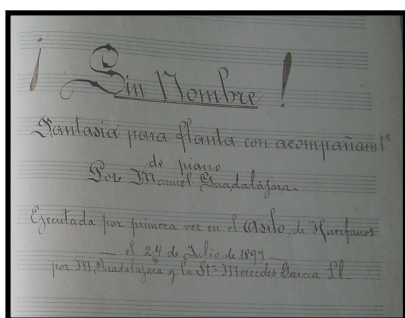 ¡Sin Nombre!
Fantasía para flauta con acompañamto
de piano
Por Manuel Guadalajara.
Ejecutada por primera vez en el Asilo de Huérfanos
el 24 de Julio de 1897
por M. Guadalajara y la Sta Mercedes García